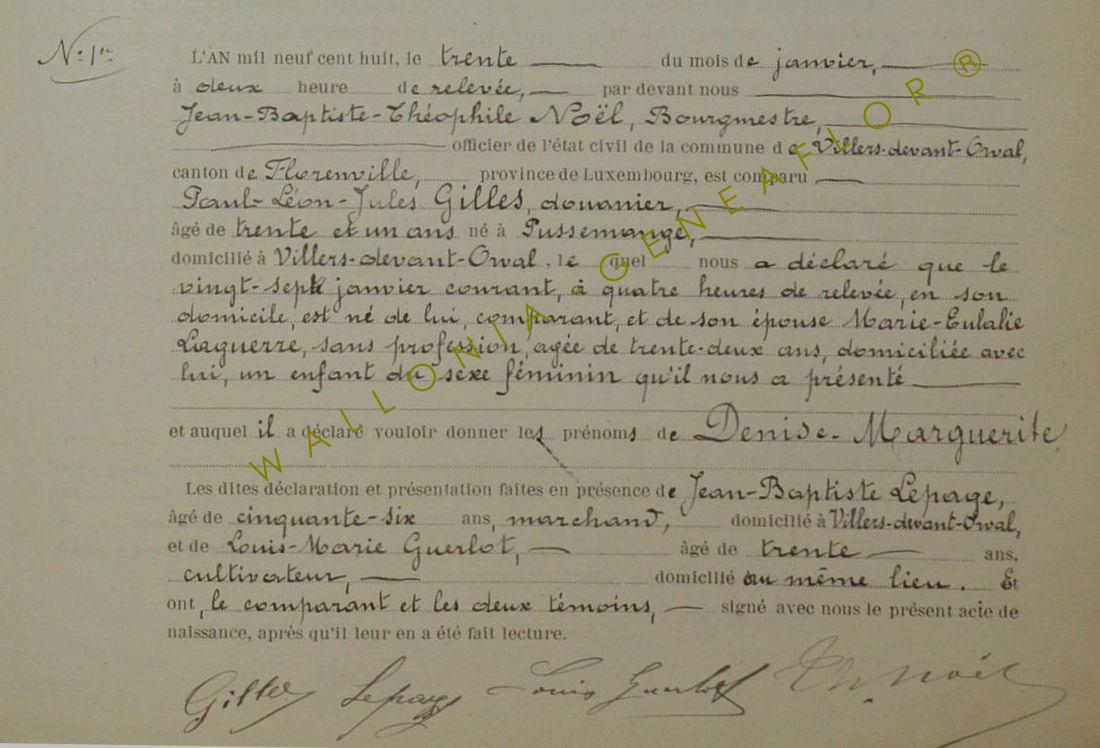 N° 1er
L'AN mil neuf cent huit, le trente du mois de janvier,
à deux heure de relevée, par devant nous
Jean-Baptiste-Théophile Noël, Bourgmestre,
officier de l'état civil de la commune de Villers-devant-Orval,
canton de Florenville, province de Luxembourg, est comparu
Paul-Léon-Jules Gilles, douanier,
âgé de trente et un ans né à Pussemange,
domicilié à Villers-devant-Orval, le quel nous a déclaré que le
vingt-sept janvier courant, à quatre heures de relevée, en son
domicile, est né de lui, comparant, et de son épouse Marie-Eulalie
Laguerre, sans profession, agée de trente-deux ans, domiciliée avec
lui, un enfant du sexe féminin qu'il nous a présenté
et auquel il a déclaré vouloir donner les prénoms de Denise-Marguerite
Les dites déclaration et présentation faites en présence de Jean-Baptiste Lepage,
âgé de cinquante-six ans, marchand, domicilié à Villers-devant-Orval,
et de Louis-Marie Guerlot, âgé de trente ans,
cultivateur, domicilié au même lieu. Et
ont, le comparant et les deux témoins, signé avec nous le présent acte de
naissance, après qu'il leur en a été fait lecture.
Gilles Lepage Louis Guerlot Th. Noël
WALLONIA GENEAFLOR ®